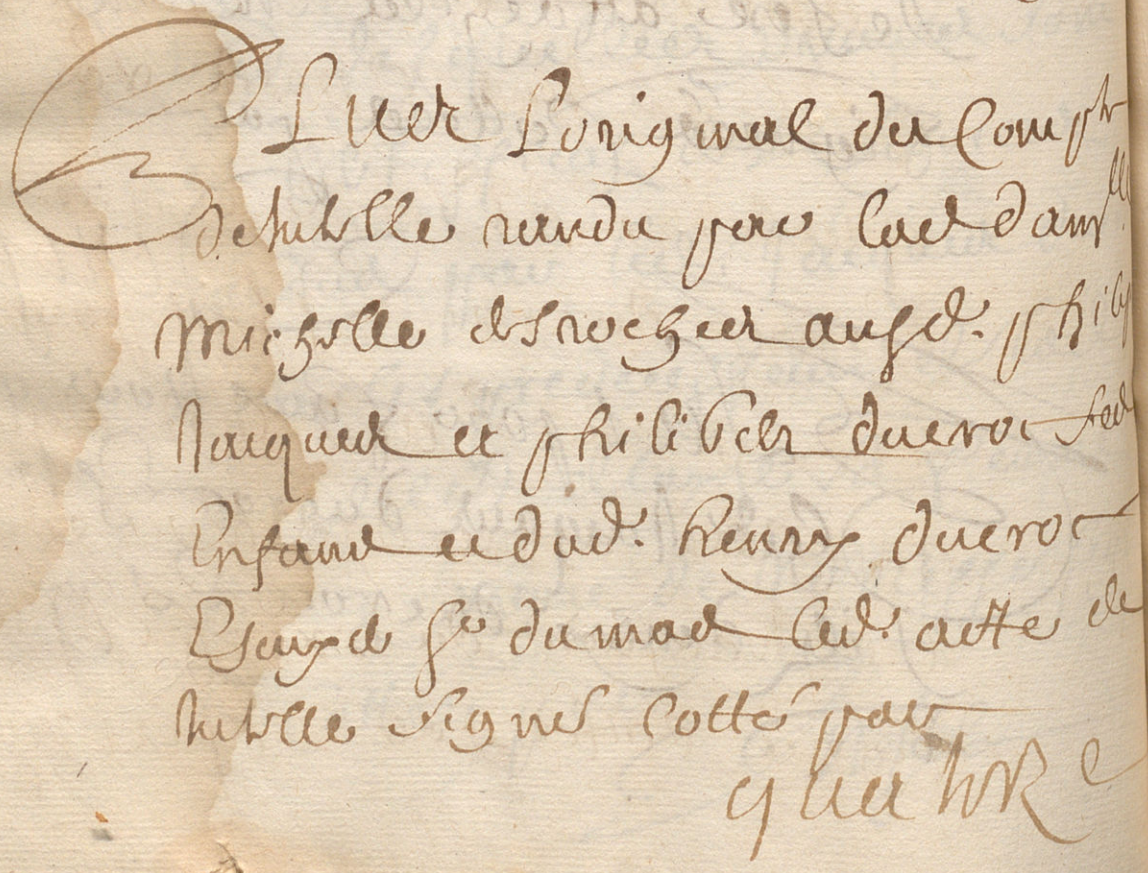 Plus Loriginal du Compte
de tutelle randu par lad dam^lle
Michelle desrocher ausd. phil
Jacques et philiber ducroc ses
Enfans et dud. henry ducroc
Escuyer Sr dumas led. acte de
tutelle signé cotté par
quatre